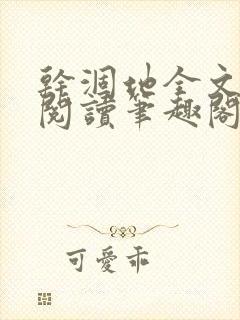 幹涸地全文
閱讀筆趣閣
可愛乖